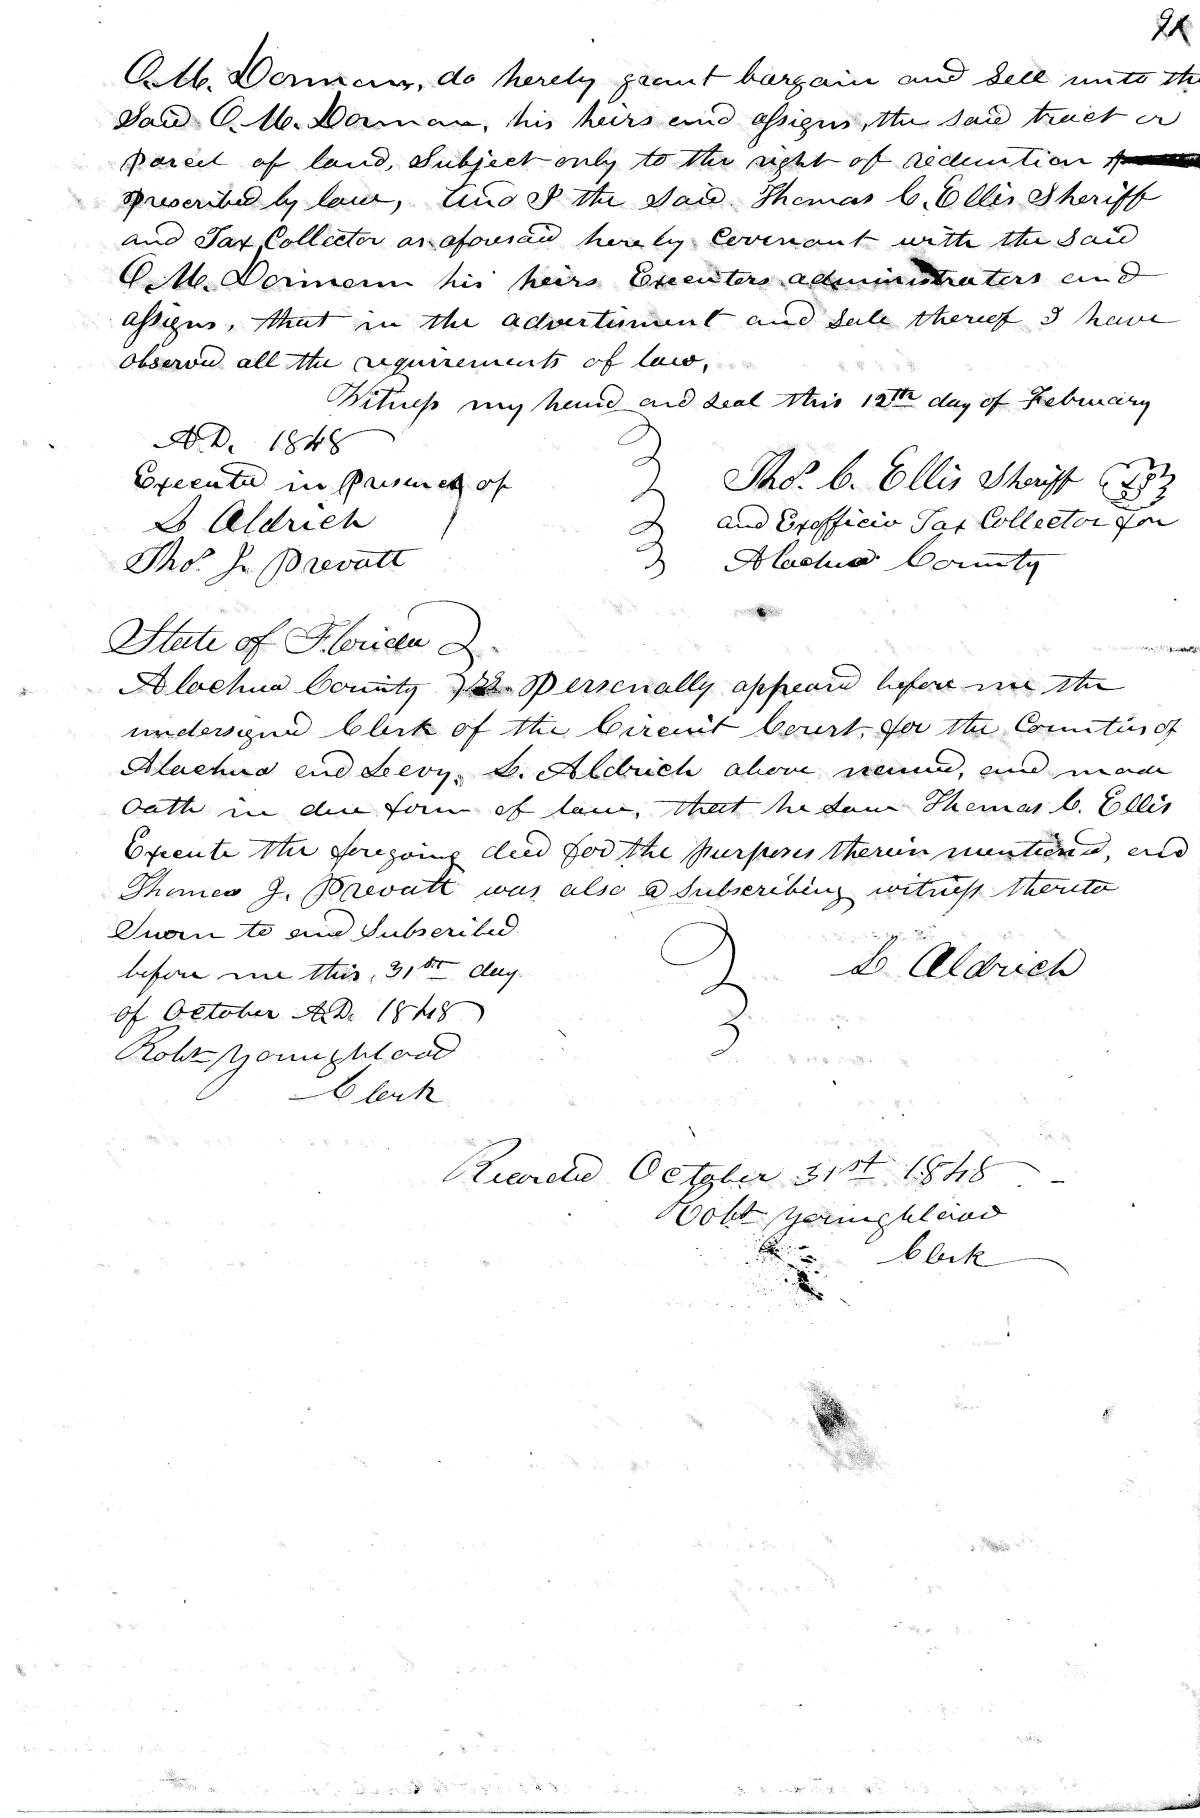 O. M. Dorman, do hereby grant bargain and Sell unto the
Said O. M. Dorman, his heirs and assigns, the said tract or
parcel of land, Subject only to the right of redemtion
prescribed by law, And I the Said Thomas C. Ellis Sheriff
and Tax Collector as aforesaid hereby Covenant with the Said
O. M. Dormann his heirs Executers administraters and
assigns, that in the advertisment and Sale thereof I have
observed all the requirements of law,
Witness my hand and Seal this 12th day of February
A.D. 1848
Executed in Presence of
L Aldrich
Thos. J. Prevatt
Thos. C. Ellis Sheriff
and Exofficio Tax Collector for
Alachua County
State of Florida
Alachua County SS. Personally appeard before me the
undersigned Clerk of the Circuit Court, for the Counties of
Alachua and Levy, L. Aldrich above named, and made
oath in due form of law, that he saw Thomas C. Ellis
Execute the foregoing deed for the purposes therein mentioned, and
Thomas J. Prevatt was also a Subscribing witness thereto
Sworn to and Subscribed
before me this, 31st day
of October A.D. 1848
L Aldrich
Robt Youngblood
Clerk
Recorded October 31st 1848
Robt Youngblood
Clerk